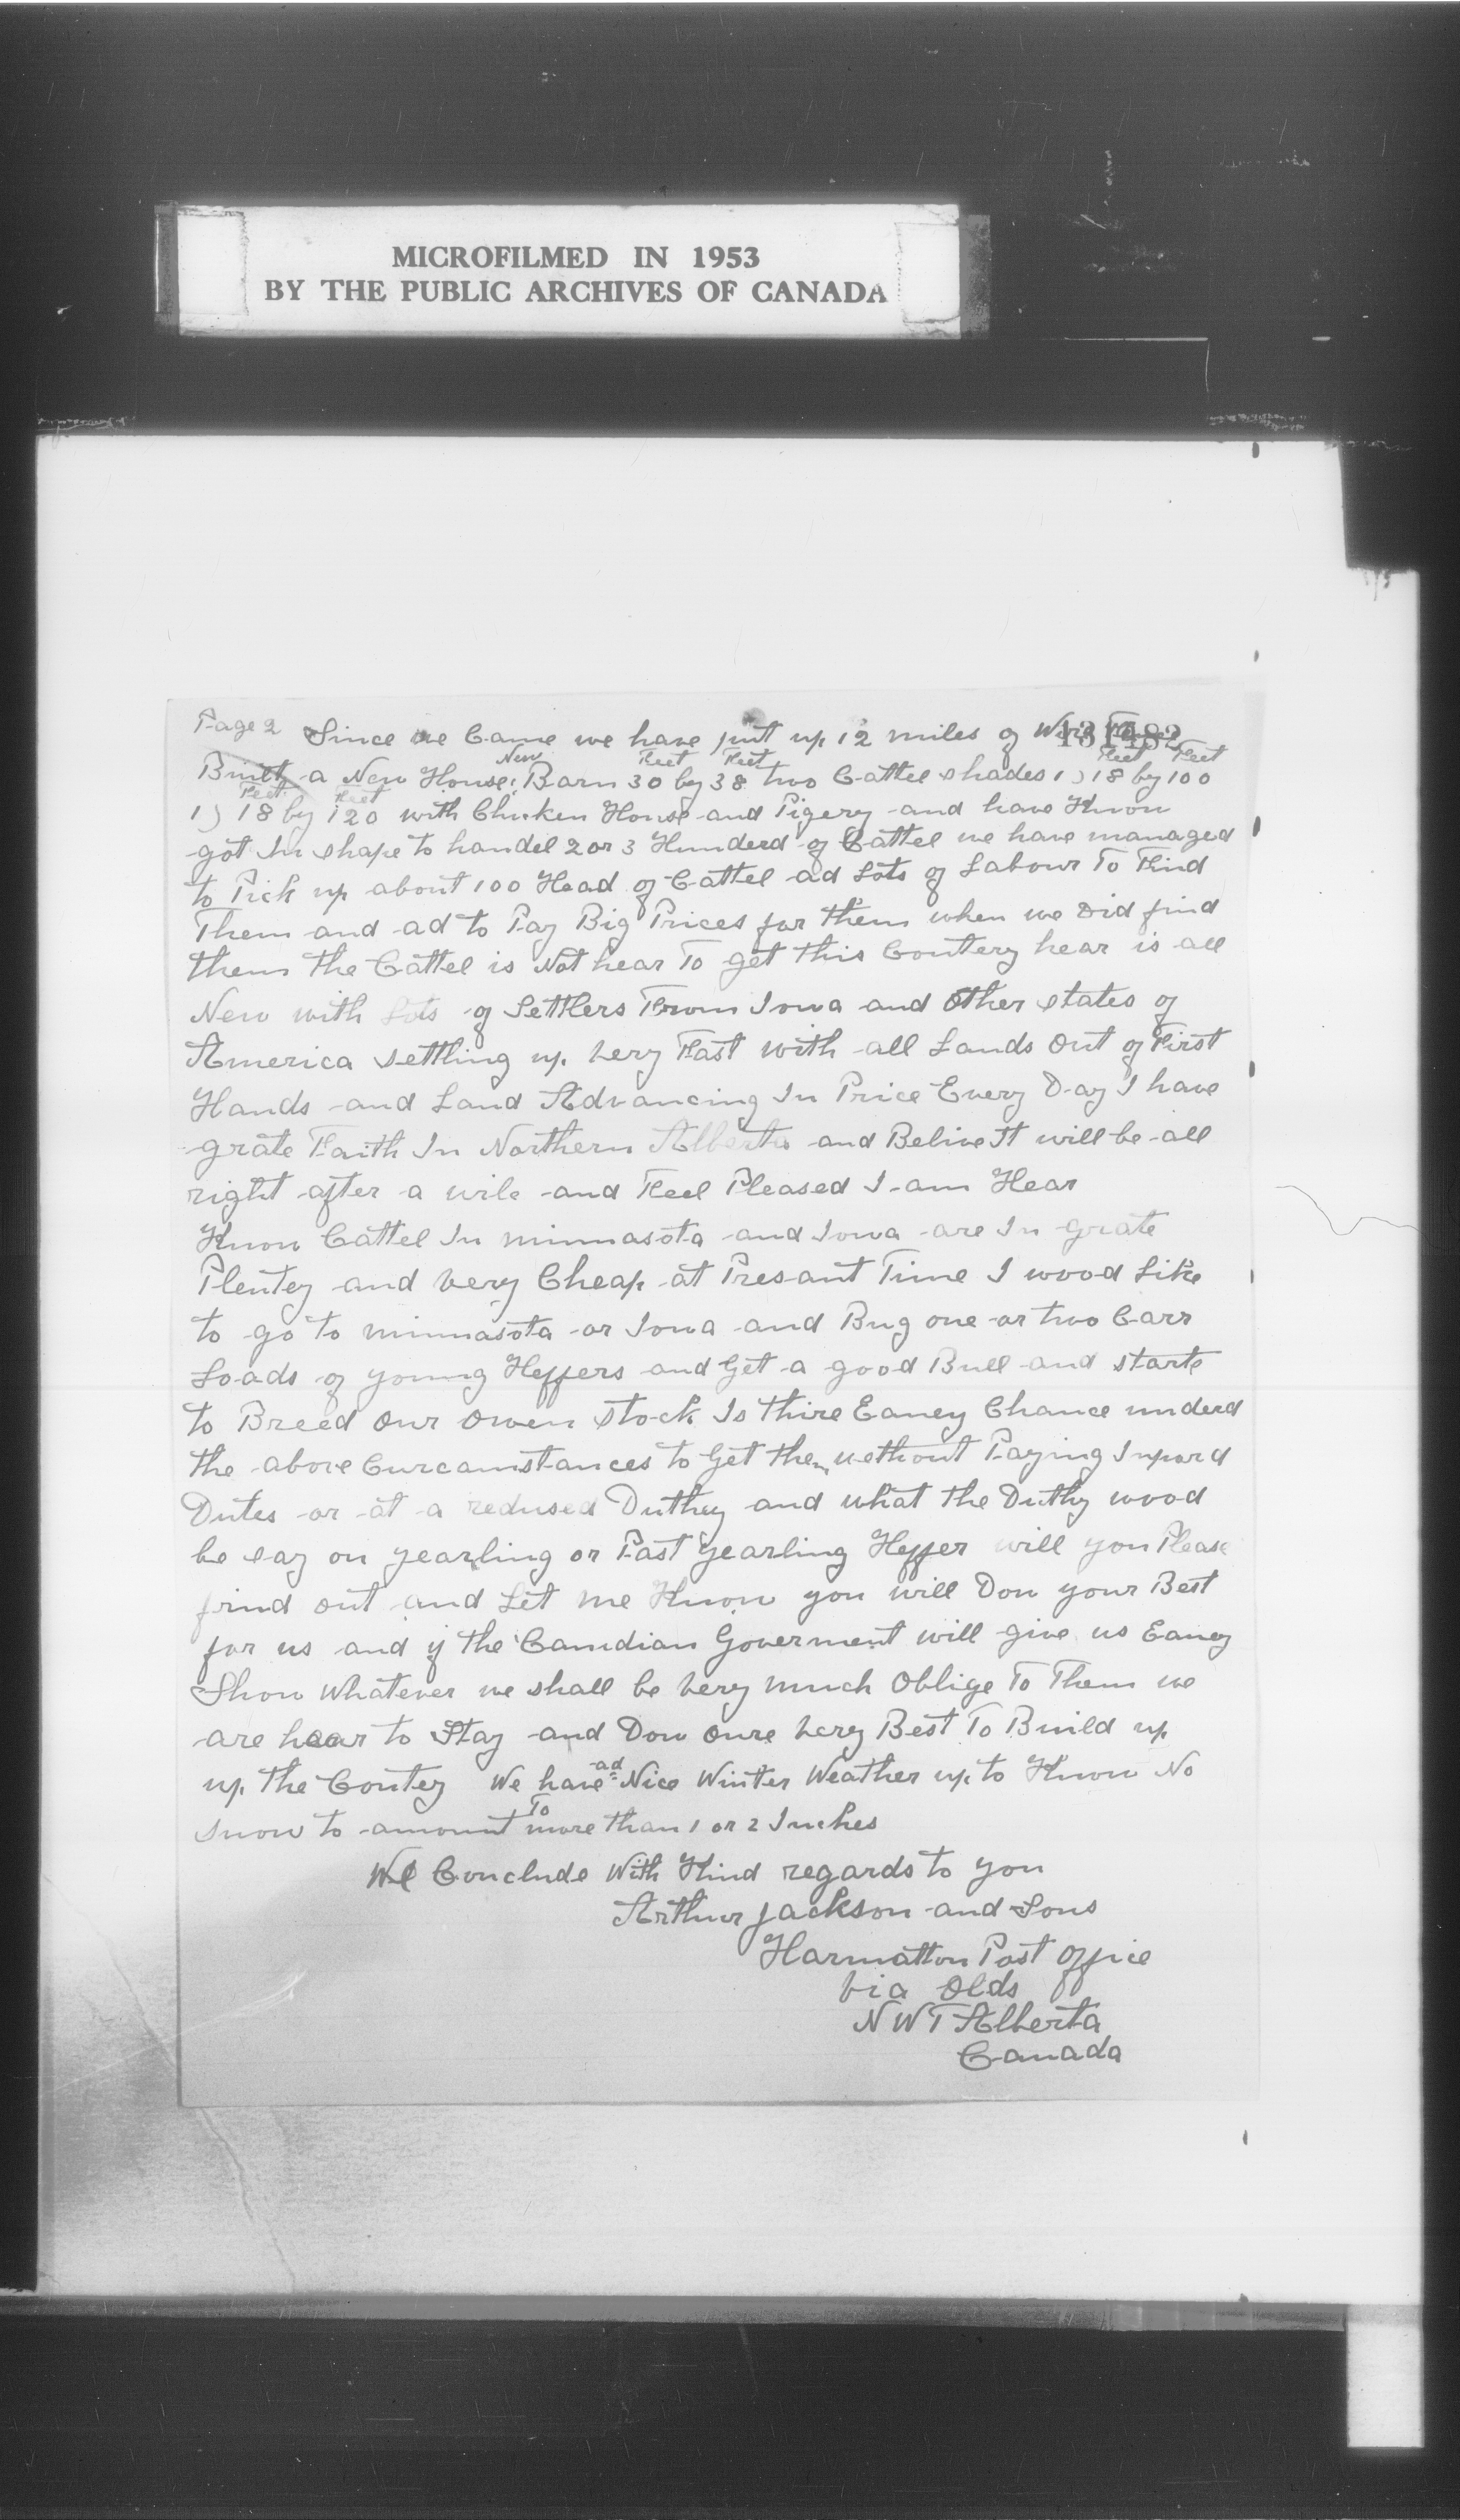 MICROFILMED IN 1953
BY THE PUBLIC ARCHIVES OF CANADA
131482
Page 2 Since we Came we have put up 12 miles of Wire
Built a New House, New Barn 30 Feet by 38 Feet two Cattel shades 1) 18 Feet by 100 Feet
1) 18 Feet by 120 Feet with Chicken House and Pigery and have Know
got In shape to handel 2 or 3 Hunderd of Cattel we have managed
to Pick up about 100 Head of Cattel ad Lots of Labour To Find
Them and ad to Pay Big Prices for them when we Did find
them the Cattel is Not hear To get this Contery hear is all
New with Lots of Settlers From Iowa and Other states of
America settling up very Fast with all Lands Out of First
Hands and Land Advancing In Price Every Day I have
grate Faith In Northern Alberta and Belive It will be all
right after a wile and Feel Pleased I am Hear
Know Cattel In minnasota and Iowa are In grate
Plentey and very Cheap at Presant Time I wood Like
to go to minnasota or Iowa and Buy one or two Carr
Loads of young Heffers and Get a good Bull and starte
to Breed Our Owen Stock Is thire Eaney Chance underd
the above Curcamstances to Get them without Paying Inpord
Dutes or at a redused Duthey and what the Duthy wood
be say on yearling or Past yearling Heffer will you Please
find out and Let me Know you will Don your Best
for us and if the Canidian Goverment will give us Eaney
Show Whatever we shall be very much Oblige To Them we
are hear to Stay and Don Oure very Best To Build up
up the Contey We have ad Nice Winter Weather up to Know No
snow to amount To more than 1 or 2 Inches
We Conclude With Kind regards to you
Arthur Jackson and Sons
Harmatton Post Office
via Olds
N W T Alberta
Canada